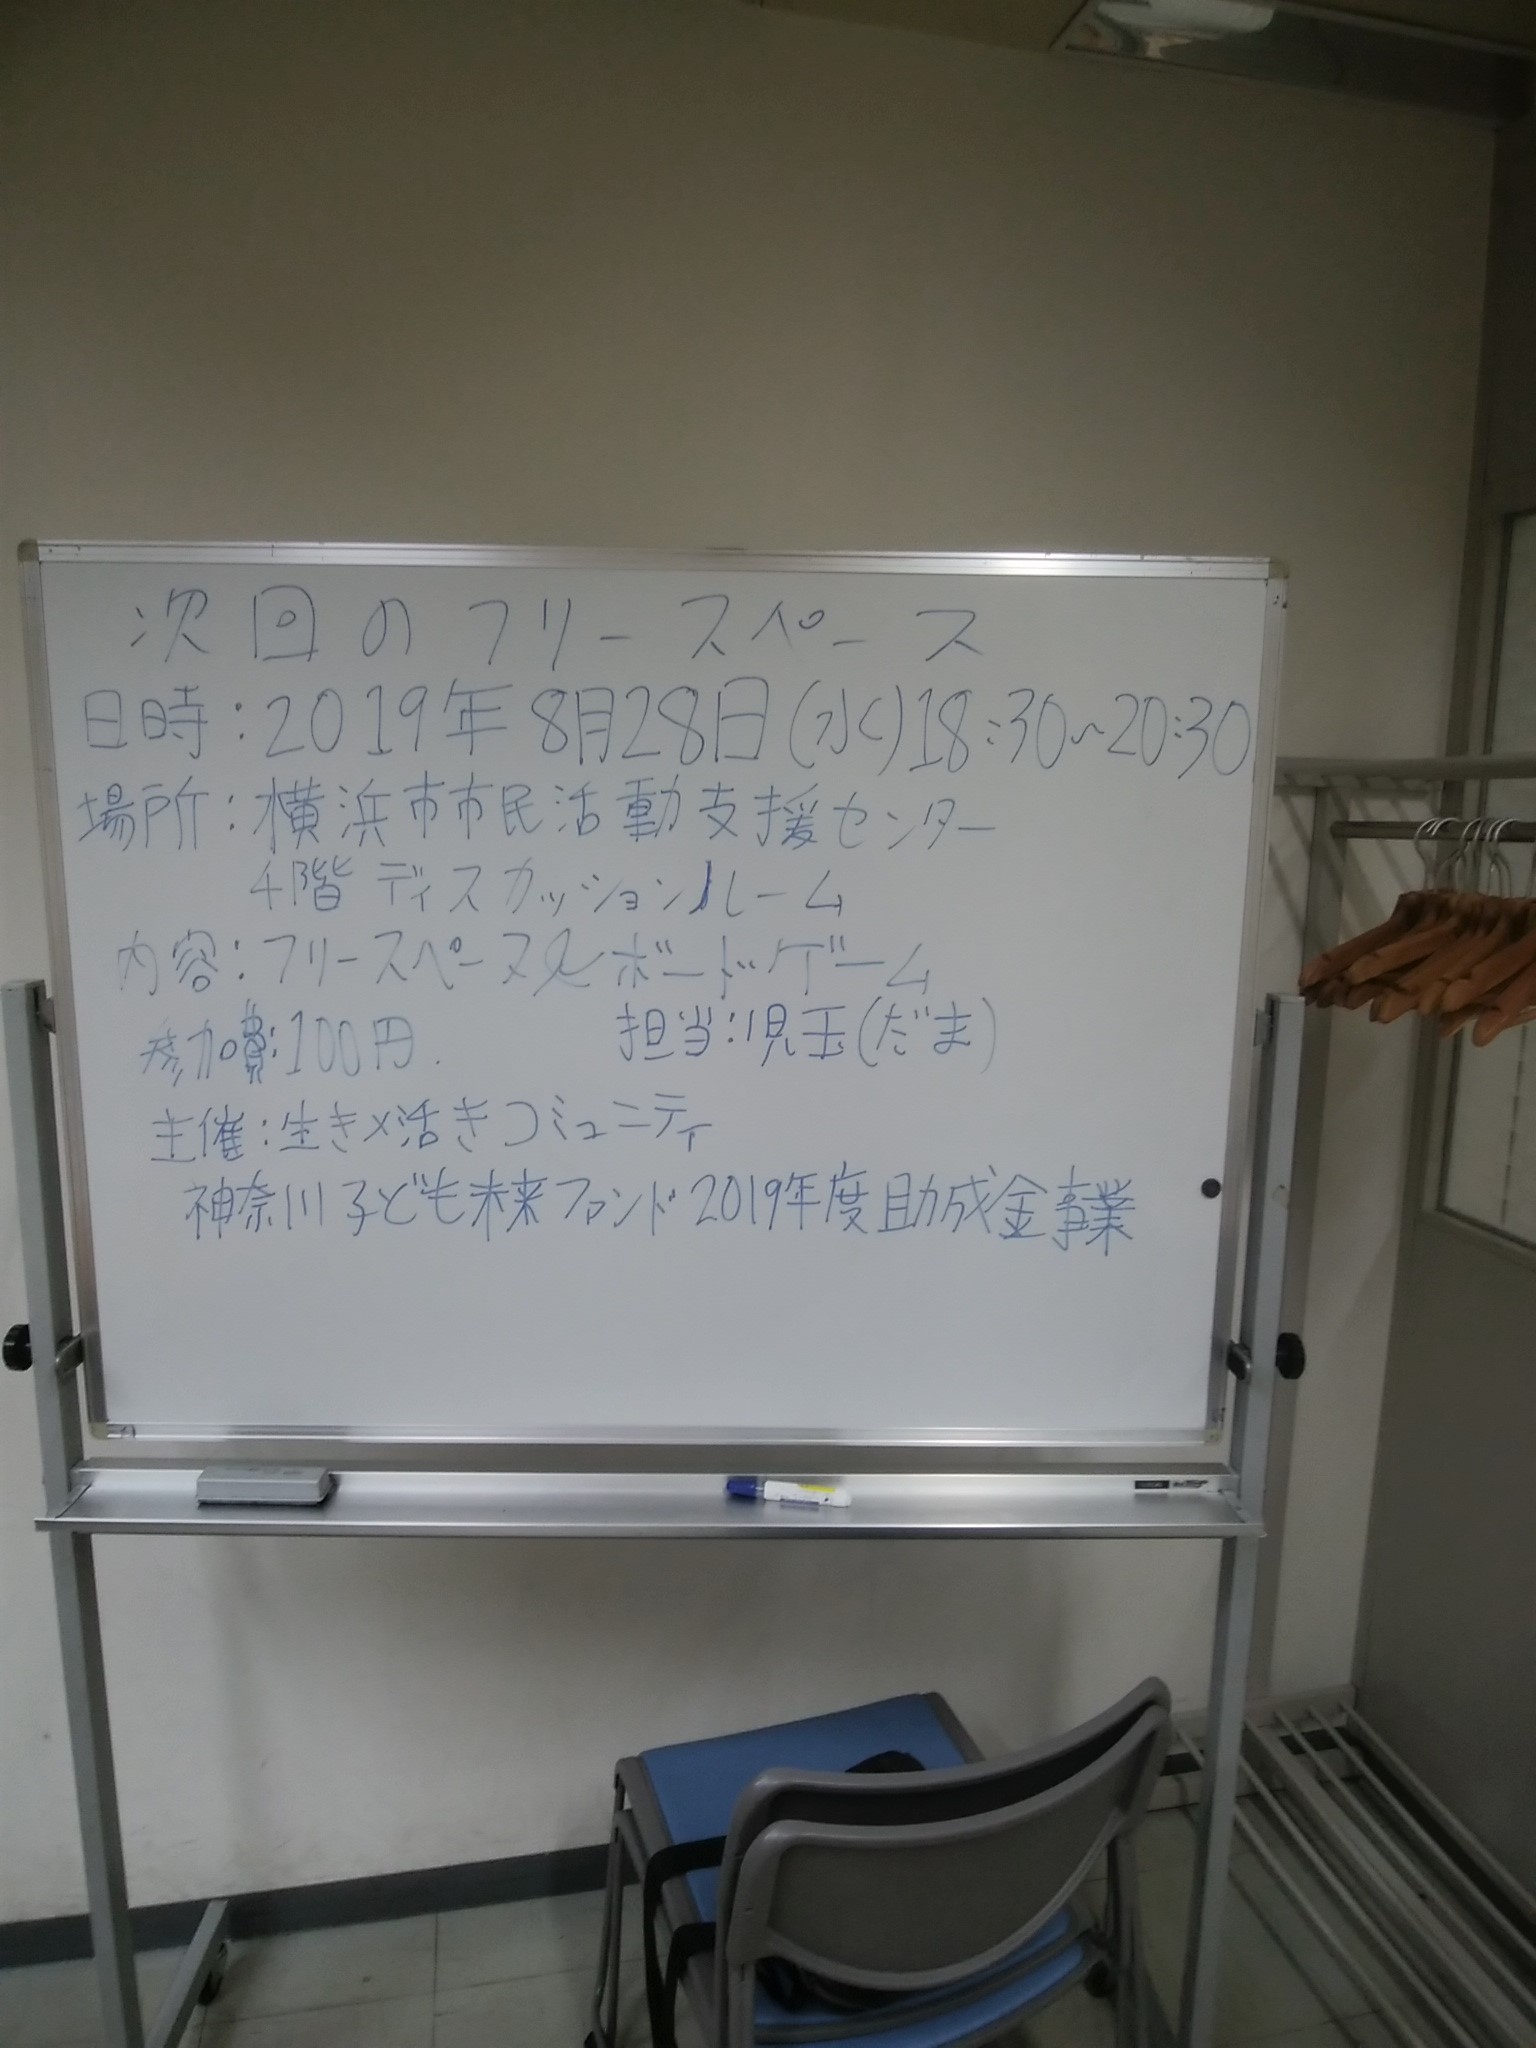 次回のフリースペース
日時:2019年8月28日(水)18:30~20:30
場所:横浜市市民活動支援センター
4階ディスカッションルーム
内容:フリースペース&ボードゲーム
参加費:100円.
担当:児玉(だま)
主催:生き×活きコミュニティ
神奈川子ども未来ファンド2019年度助成金事業